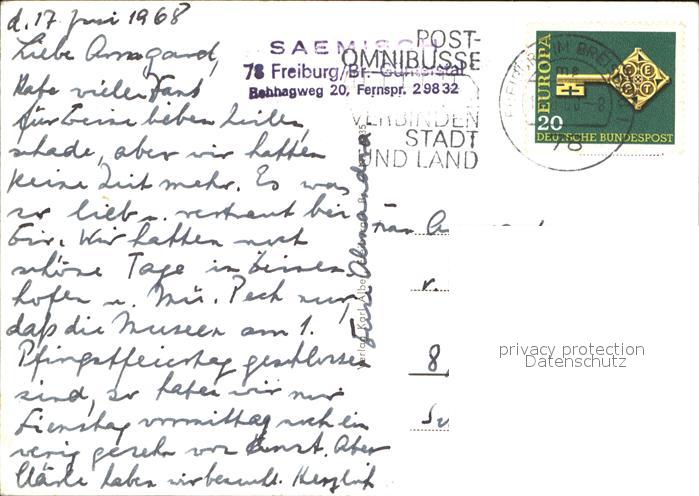 d. 17. Juni 1968
Liebe Armgard,
Habe vielen Dank
für Deine lieben Zeilen,
schade, aber wir hatten
keine Zeit mehr. Es war
so lieb u. vertraut bei
Dir. Wir hatten noch
schöne Tage in
hofen u. Mü. Pech nur,
daß die Museen am 1.
Pfingstfeiertag geschlossen
sind, so haben wir nur
Dienstag vormittag noch ein
wenig gesehn von Kunst. Aber
Märkte haben wir besucht. Herzlich
Eure Almandina
SAEMISCH
78 Freiburg/Br.-Günterstal
Bohhagweg 20, Fernspr. 29832
POST-
OMNIBUSSE
VERBINDEN
STADT
UND LAND
FREIBURG IM BREISGAU
-8
78
EUROPA
CEPT
20
DEUTSCHE BUNDESPOST
Verlag Karl Alber
Frau
v.
8
privacy protection
Datenschutz